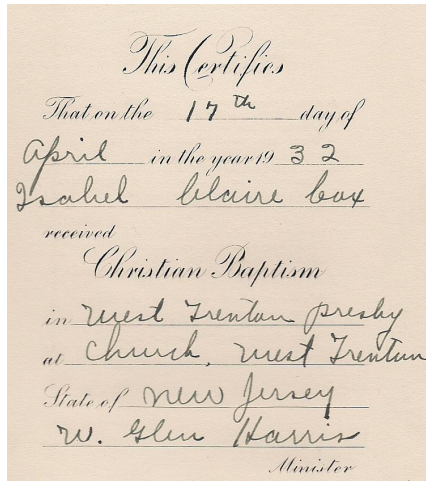 This Certifies
That on the 17th day of
April in the year 1932
Isabel Claire Cox
received
Christian Baptism
in West Trenton Presby
at Church, West Trenton
State of New Jersey
W. Glen Harris
Minister